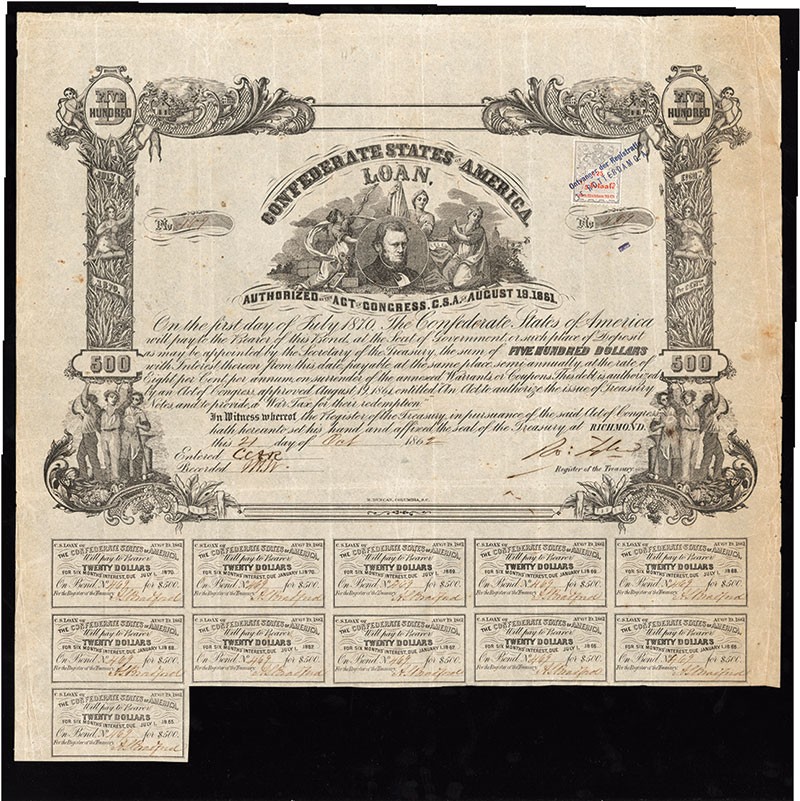 FIVE HUNDRED
FIVE HUNDRED
CONFEDERATE STATES OF AMERICA
LOAN,
JULY 1,
1876.
PER CENT.
Ontvanger der Registratie
ROTTERDAM
No.
No.
AUTHORIZED BY THE ACT OF CONGRESS, C.S.A. OF AUGUST 19. 1861.
On the first day of July 1876, The Confederate States of America
will pay to the Bearer of this Bond, at the Seat of Government, or such place of Deposit
as may be appointed by the Secretary of the Treasury, the sum of FIVE HUNDRED DOLLARS
with Interest thereon from this date, payable at the same place, semi-annually, at the rate of
Eight per Cent. per annum, on surrender of the annexed Warrants or Coupons. This debt is authorized
by an Act of Congress, approved August 19, 1861, entitled "An Act to authorize the issue of Treasury
Notes and to provide a War Tax for their redemption"
500
500
In Witness whereof the Register of the Treasury, in pursuance of the said Act of Congress
hath hereunto set his hand and affixed the seal of the Treasury, at RICHMOND.
this 21 day of Oct 1862
Entered
Recorded
Ro: Tyler
Register of the Treasury
B. DUNCAN, COLUMBIA, S.C.
C.S. LOAN OF AUGT 19, 1861
THE CONFEDERATE STATES OF AMERICA,
Will pay to Bearer
TWENTY DOLLARS
FOR SIX MONTHS INTEREST, DUE JULY 1, 1870.
On Bond No 469 for $500.
For the Register of the Treasury
C.S. LOAN OF AUGT 19, 1861
THE CONFEDERATE STATES OF AMERICA,
Will pay to Bearer
TWENTY DOLLARS
FOR SIX MONTHS INTEREST, DUE JANUARY 1, 1870.
On Bond No 469 for $500.
For the Register of the Treasury
C.S. LOAN OF AUGT 19, 1861
THE CONFEDERATE STATES OF AMERICA,
Will pay to Bearer
TWENTY DOLLARS
FOR SIX MONTHS INTEREST, DUE JULY 1, 1869.
On Bond No 469 for $500.
For the Register of the Treasury
C.S. LOAN OF AUGT 19, 1861
THE CONFEDERATE STATES OF AMERICA,
Will pay to Bearer
TWENTY DOLLARS
FOR SIX MONTHS INTEREST, DUE JANUARY 1, 1869.
On Bond No 469 for $500.
For the Register of the Treasury
C.S. LOAN OF AUGT 19, 1861
THE CONFEDERATE STATES OF AMERICA,
Will pay to Bearer
TWENTY DOLLARS
FOR SIX MONTHS INTEREST, DUE JULY 1, 1868.
On Bond No 469 for $500.
For the Register of the Treasury
C.S. LOAN OF AUGT 19, 1861
THE CONFEDERATE STATES OF AMERICA,
Will pay to Bearer
TWENTY DOLLARS
FOR SIX MONTHS INTEREST, DUE JANUARY 1, 1868.
On Bond No 469 for $500.
For the Register of the Treasury
C.S. LOAN OF AUGT 19, 1861
THE CONFEDERATE STATES OF AMERICA,
Will pay to Bearer
TWENTY DOLLARS
FOR SIX MONTHS INTEREST, DUE JULY 1, 1867.
On Bond No 469 for $500.
For the Register of the Treasury
C.S. LOAN OF AUGT 19, 1861
THE CONFEDERATE STATES OF AMERICA,
Will pay to Bearer
TWENTY DOLLARS
FOR SIX MONTHS INTEREST, DUE JANUARY 1,
On Bond No 469 for $500.
For the Register of the Treasury
C.S. LOAN OF AUGT 19, 1861
THE CONFEDERATE STATES OF AMERICA,
Will pay to Bearer
TWENTY DOLLARS
FOR SIX MONTHS INTEREST, DUE JULY 1, 1866.
On Bond No 469 for $500.
For the Register of the Treasury
C.S. LOAN OF AUGT 19, 1861
THE CONFEDERATE STATES OF AMERICA,
Will pay to Bearer
TWENTY DOLLARS
FOR SIX MONTHS INTEREST, DUE JANUARY 1, 1866.
On Bond No 469 for $500.
For the Register of the Treasury
C.S. LOAN OF AUGT 19, 1861
THE CONFEDERATE STATES OF AMERICA,
Will pay to Bearer
TWENTY DOLLARS
FOR SIX MONTHS INTEREST, DUE JULY 1, 1865.
On Bond No 469 for $500.
For the Register of the Treasury